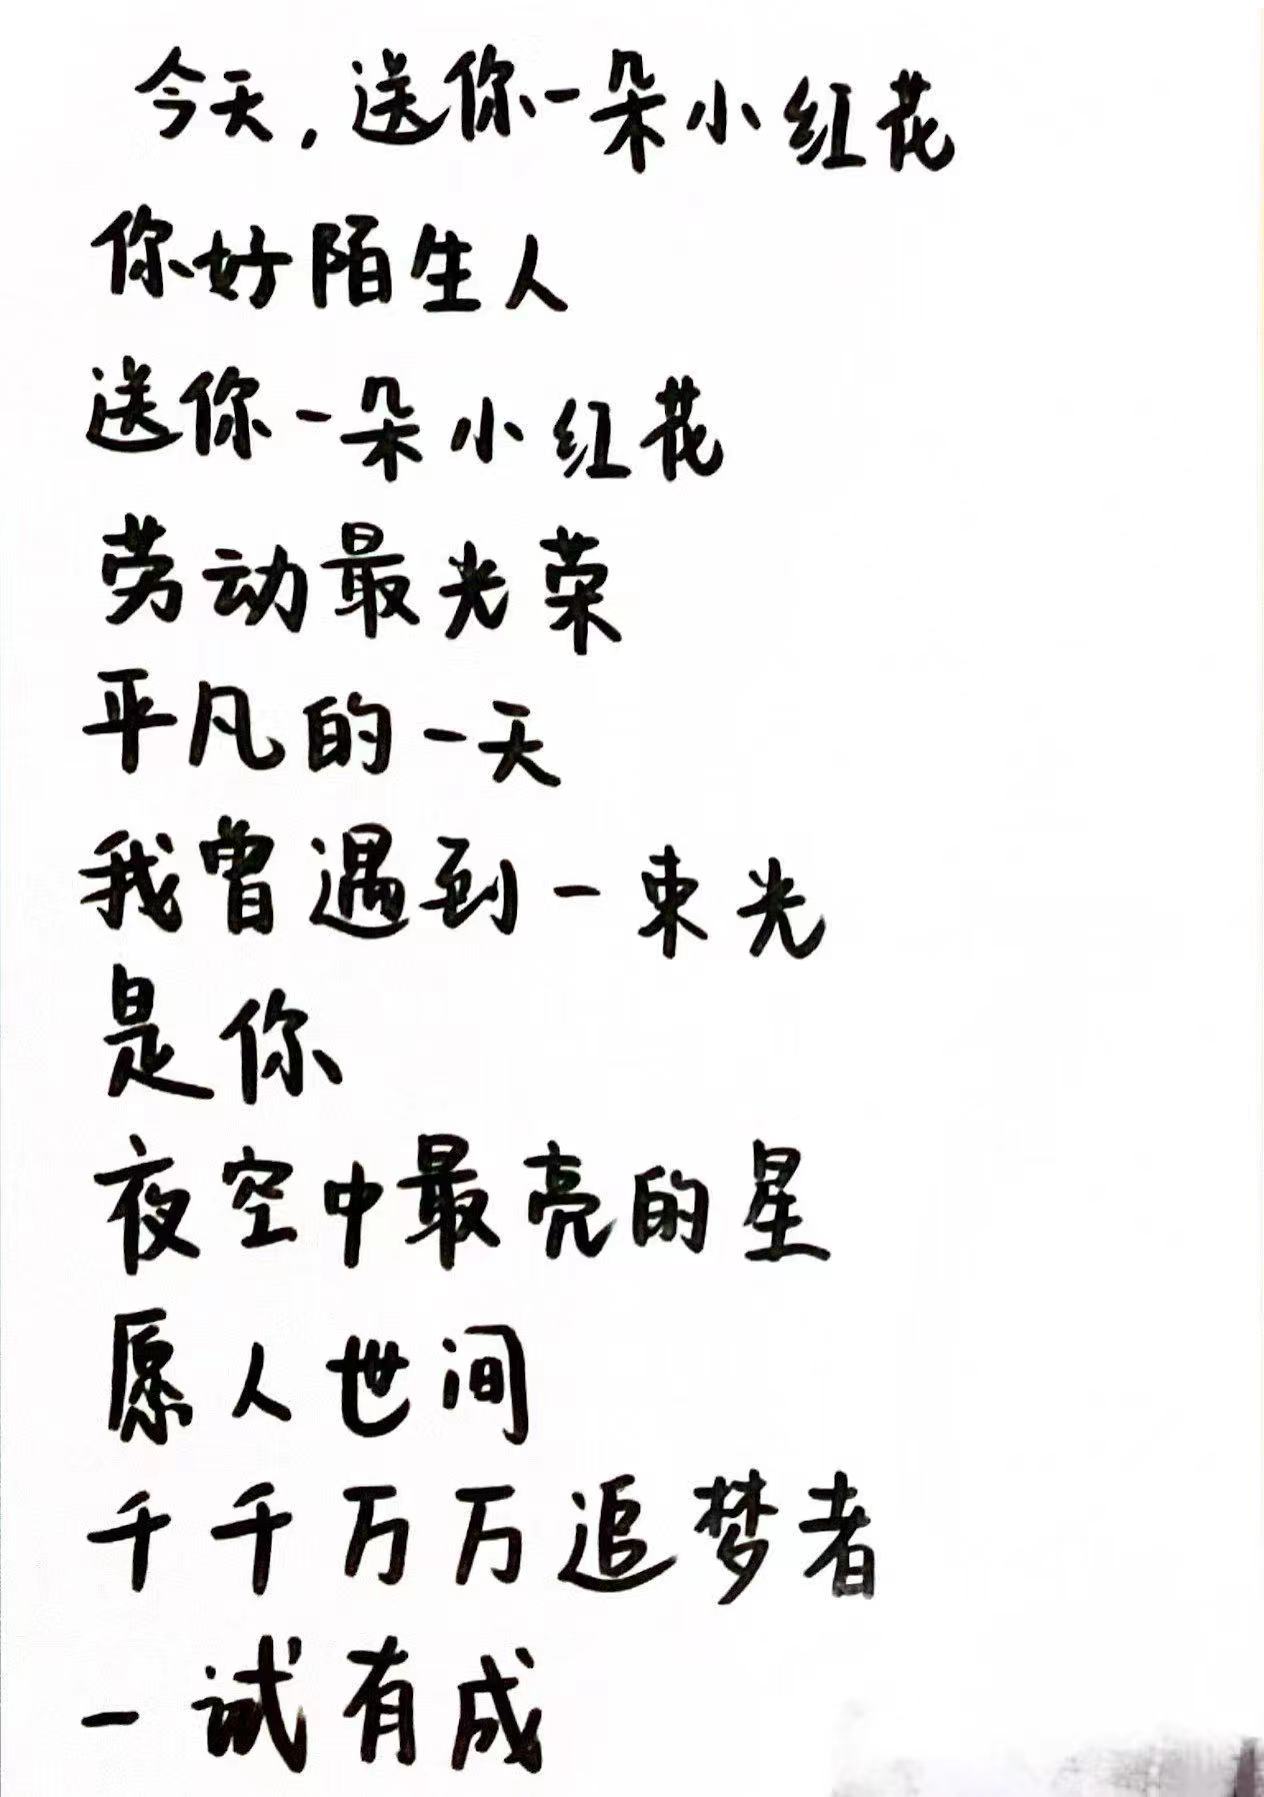 今天,送你一朵小红花
你好陌生人
送你一朵小红花
劳动最光荣
平凡的一天
我曾遇到一束光
是你
夜空中最亮的星
愿人世间
千千万万追梦者
一试有成